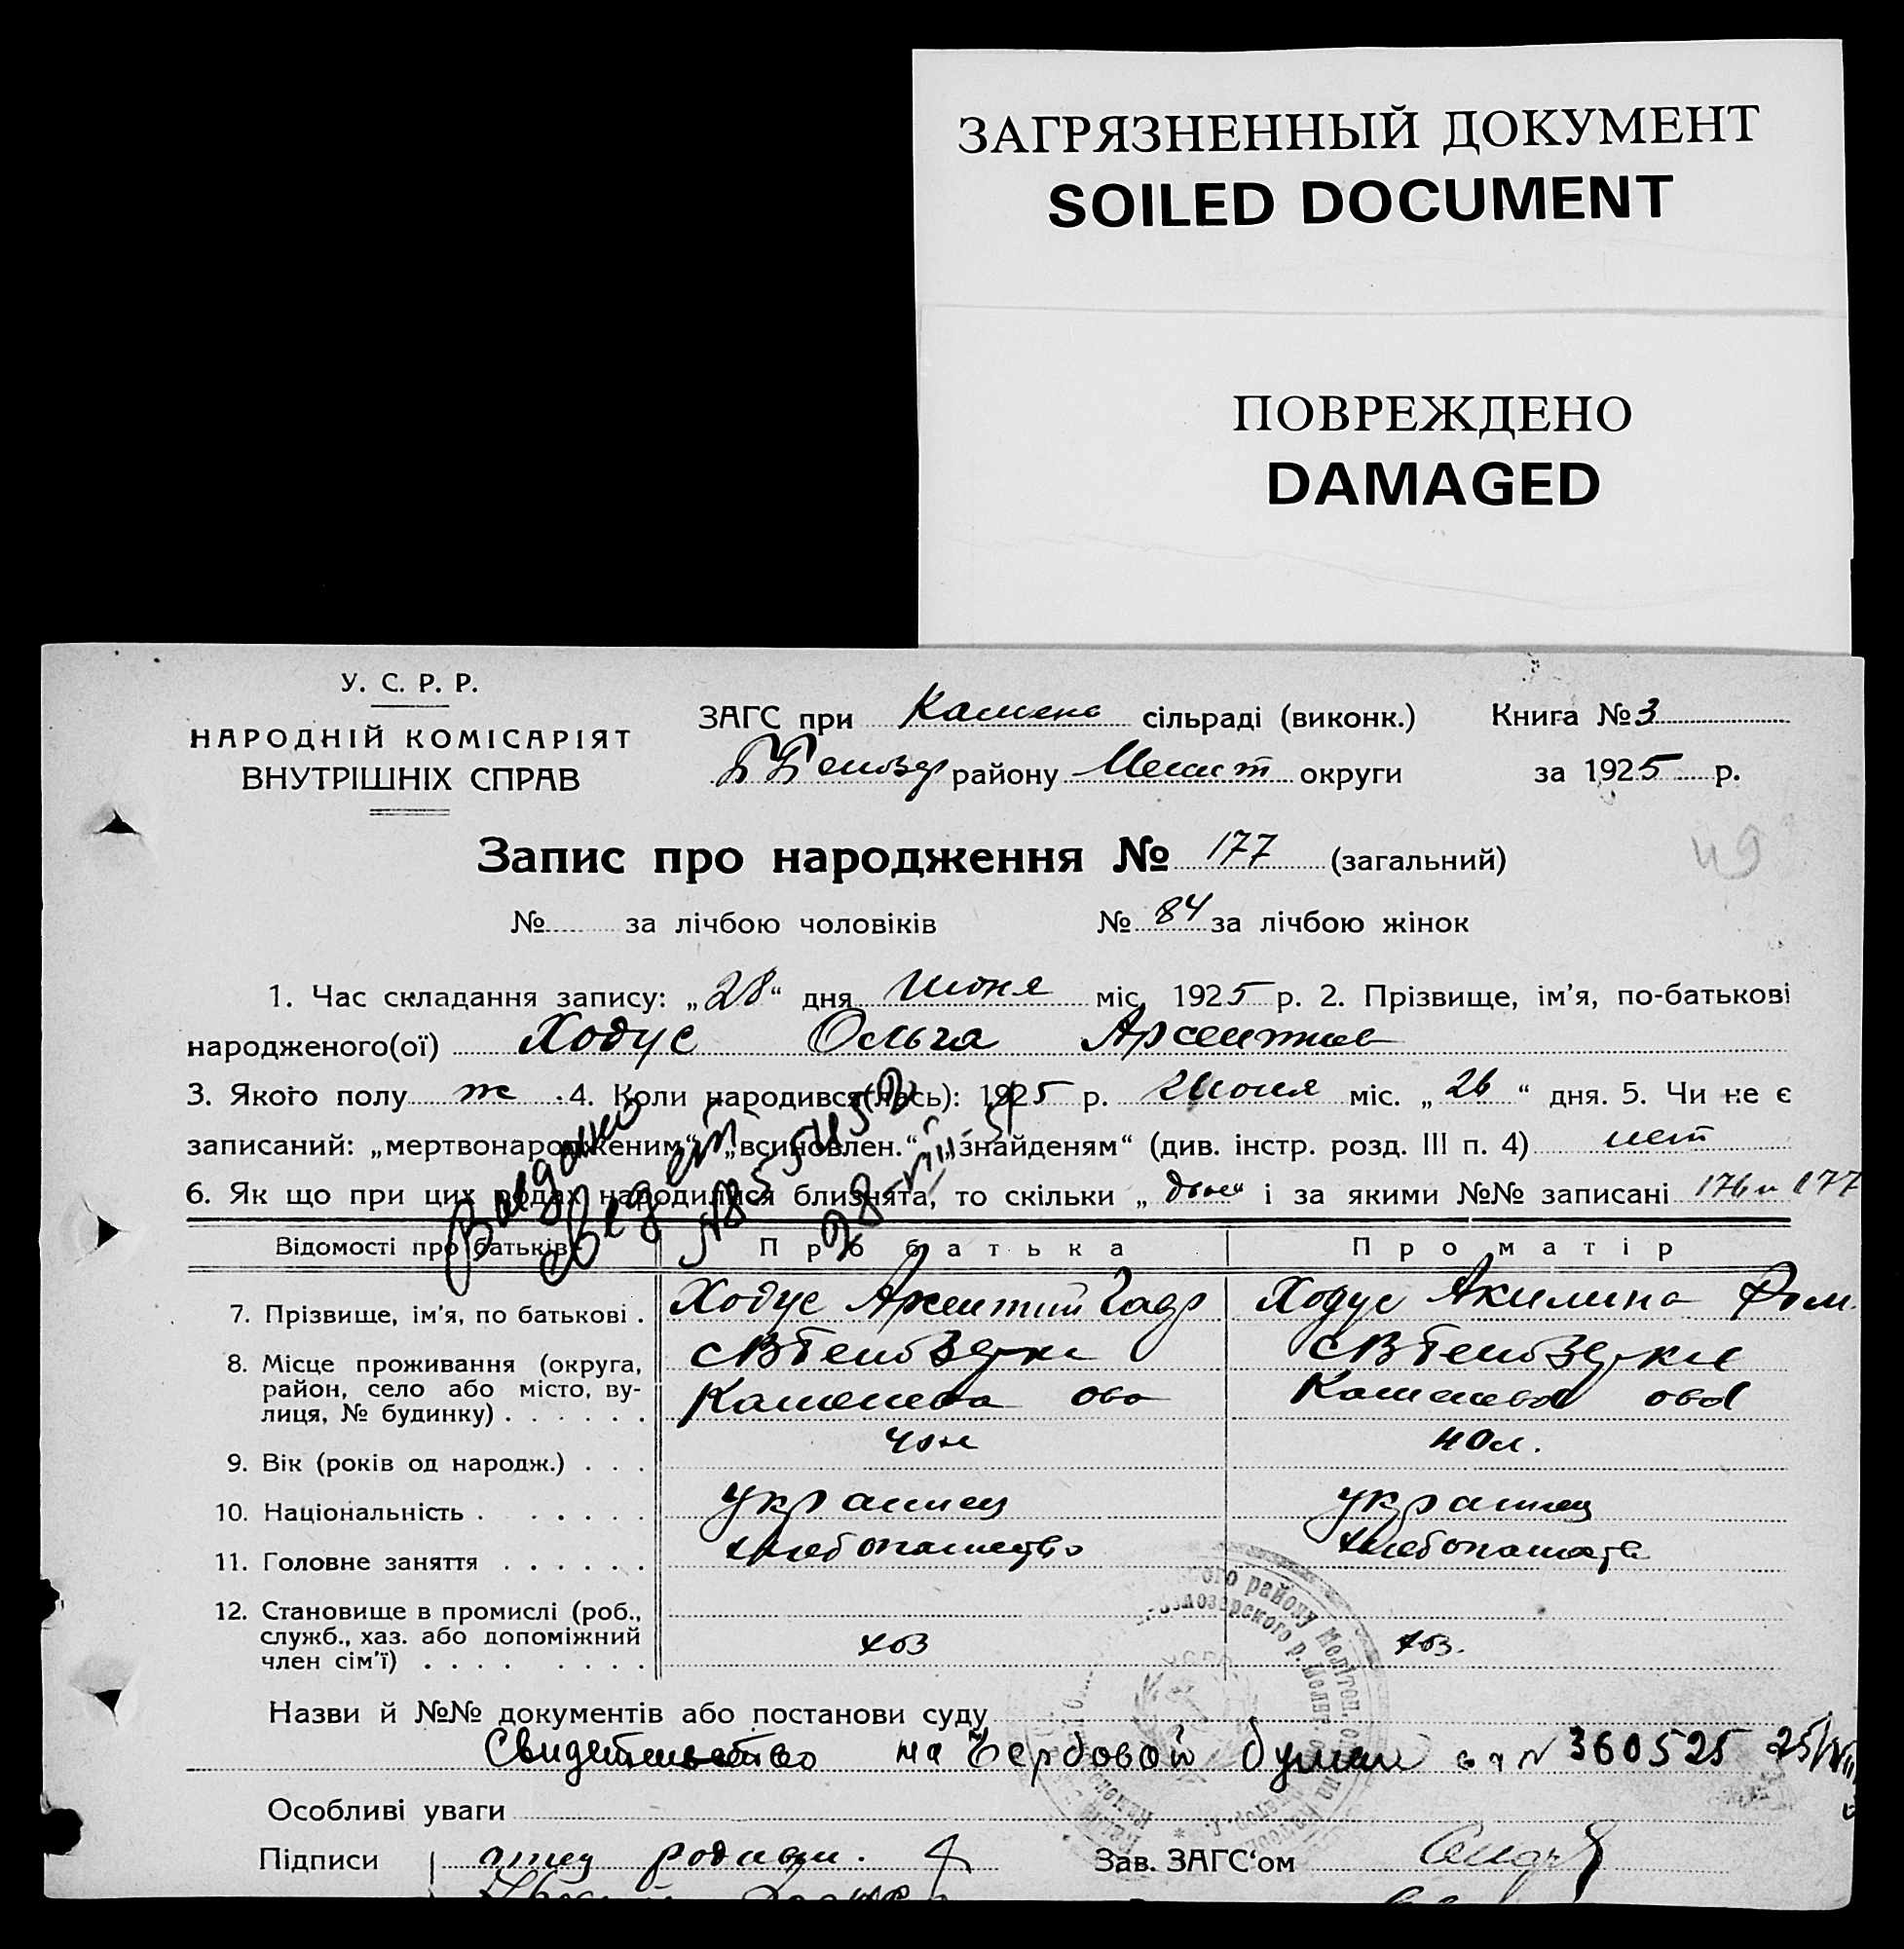 ЗАГРЯЗНЕННЫЙ ДОКУМЕНТ
SOILED DOCUMENT
ПОВРЕЖДЕНО
DAMAGED
У. С. Р. Р.
НАРОДНІЙ КОМІСАРІЯТ
ВНУТРІШНІХ СПРАВ
ЗАГС при Камено сільраді (виконк.)
району Мелит округи
Книга № 3
за 1925 р.
Запис про народження № 177 (загальний)
49
№ за лічбою чоловіків № 84 за лічбою жінок
1. Час складання запису: „28“ дня Июня міс. 1925 р. 2. Прізвище, ім'я, по-батькові
народженого(ої) Ходус Ольга Арсентиев
3. Якого полу ж. 4. Коли народився(лась): 1925 р. Июня міс. „26“ дня. 5. Чи не є
записаний: „мертвонародженим“, „всиновлен.“ „знайденям“ (див. інстр. розд. III п. 4) нет
6. Як що при цих родах народилися близнята, то скільки „двое“ і за якими №№ записані 176 и 177
Відомості про батьків Про батька Про матір
7. Прізвище, ім'я, по батькові . Ходус Арсентий Ходус Акилина
8. Місце проживання (округа,
район, село або місто, вулиця, № будинку) . . . . . .
9. Вік (років од народж.) . . . 40л 40л.
10. Національність . . . . . . украинец украинец
11. Головне заняття . . . . . . хлебопашество хлебопашеств
12. Становище в промислі (роб.,
служб., хаз. або допоміжний
член сім'ї) . . . . . . . . хоз хоз.
Назви й №№ документів або постанови суду
Свидетельство на гербовой бумаге № 360525
Особливі уваги
Підписи отец Зав. ЗАГС'ом